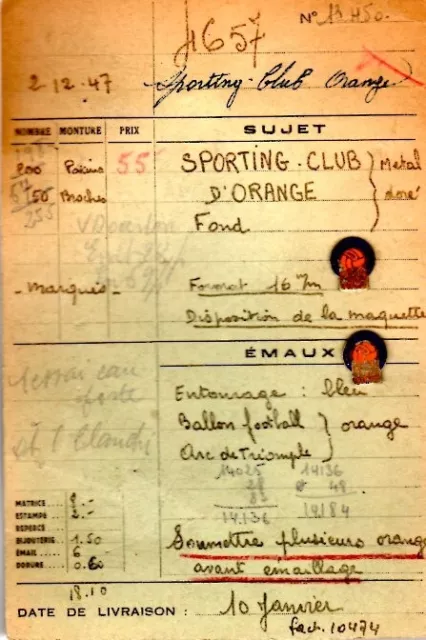 N° 13.450.
4657
2.12.47 Sporting-Club Orange
NOMBRE MONTURE PRIX SUJET
200 Patins 55 SPORTING-CLUB Métal
50 Broches D'ORANGE doré
255 Fond
- Marquis - Format 16 m/m
Disposition de la maquette
ÉMAUX
Entourage : bleu
Ballon football } orange
Arc de Triomphe
14025 14136
28 48
83
14.136 14184
MATRICE
ESTAMPE 2.-
REPERCÉ
BIJOUTERIE 1.50
ÉMAIL 6
DORURE 0.60
18.10
Soumettre plusieurs orange
avant émaillage
DATE DE LIVRAISON : 10 Janvier
fact. 10474